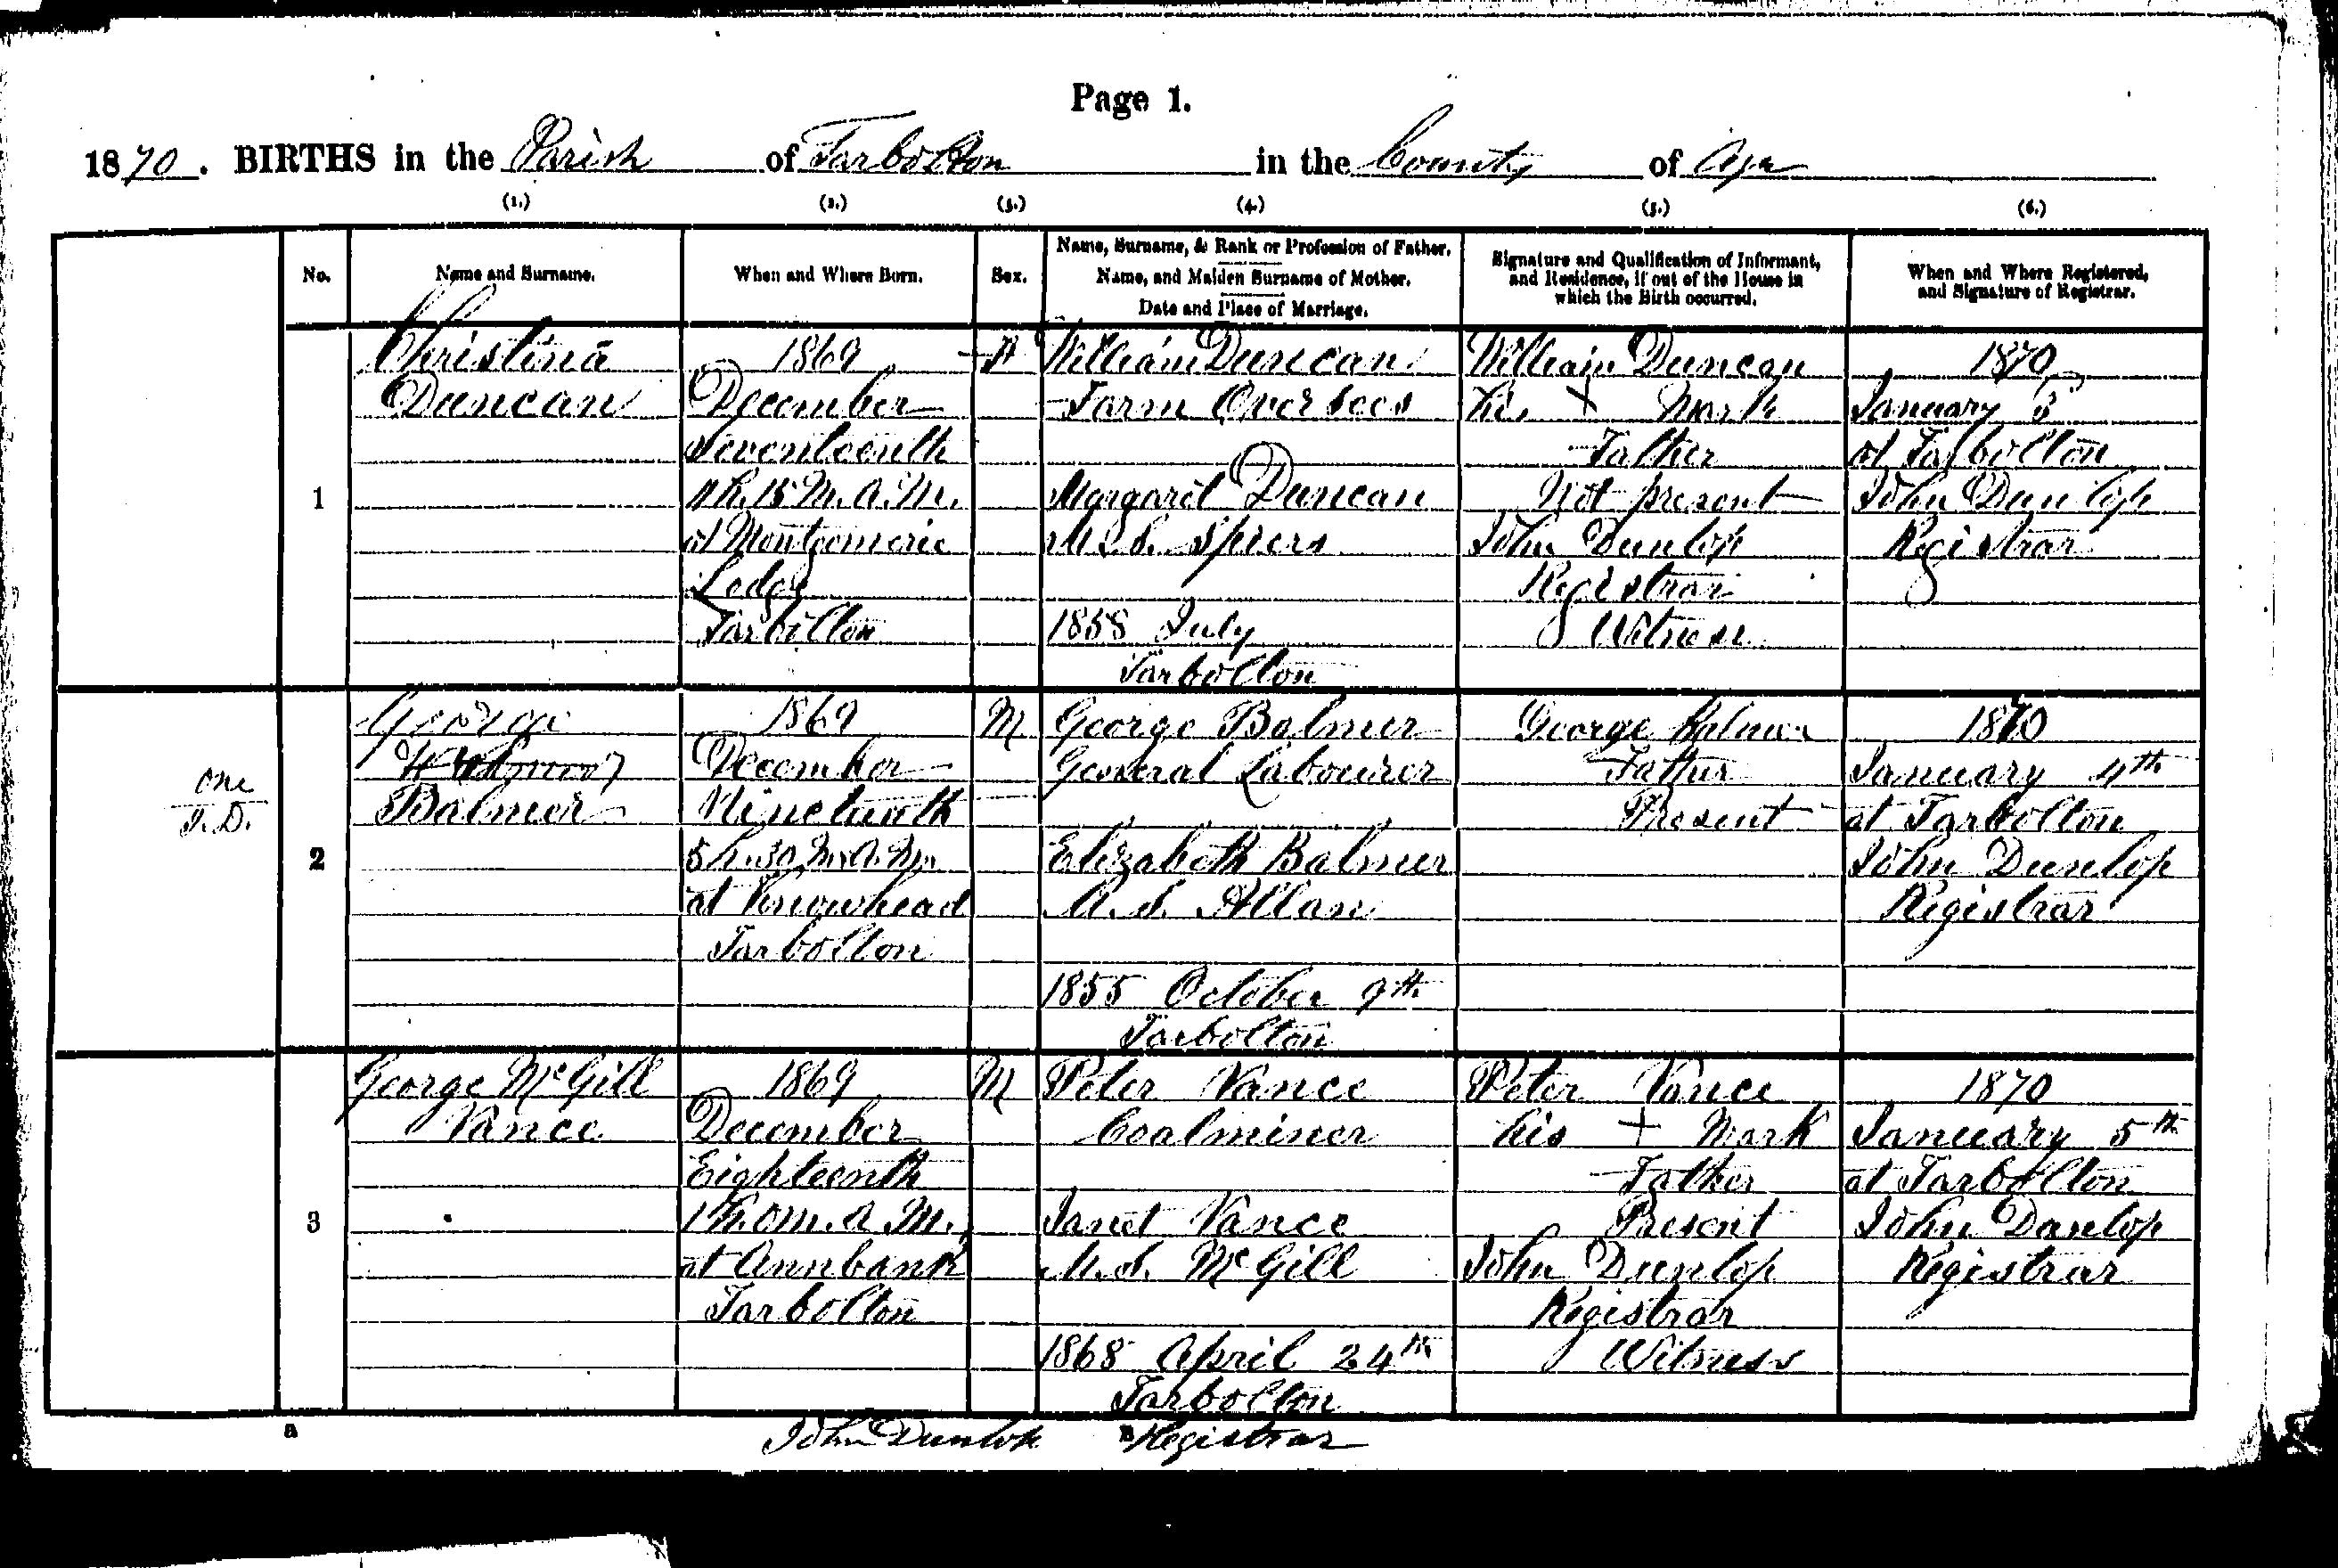 Page 1.
1870. BIRTHS in the Parish of Tarbolton in the County of Ayr
(1.) (2.) (3.) (4.) (5.) (6.)
No. Name and Surname. When and Where Born. Sex. Name, Surname, & Rank or Profession of Father. Name, and Maiden Surname of Mother. Date and Place of Marriage. Signature and Qualification of Informant, and Residence, if out of the House in which the Birth occurred. When and Where Registered, and Signature of Registrar.
1
Christina
Duncan
1869
December
Seventeenth
h. 15 M. A.M.
at Montgomerie
Lodge
Tarbolton
F
William Duncan
Farm Overseer
Margaret Duncan
M.S. Spiers
1858 July
Tarbolton
William Duncan
his + Mark
Father
Not present
John Dunlop
Registrar
Witness
1870
January
at Tarbolton
John Dunlop
Registrar
one
J.D.
2
George
Balmer
1869
December
Nineteenth
5 h. 30 M. A.M.
at Knowhead
Tarbolton
M
George Balmer
General Labourer
Elizabeth Balmer
M.S. Allan
1855 October 9th
Tarbolton
George Balmer
Father
Present
1870
January 4th
at Tarbolton
John Dunlop
Registrar
3
George McGill
Vance
1869
December
Eighteenth
1 h. 0 M. A.M.
at Annbank
Tarbolton
M
Peter Vance
Coalminer
Janet Vance
M.S. McGill
1868 April 24th
Tarbolton
Peter Vance
his + Mark
Father
Present
John Dunlop
Registrar
Witness
1870
January 5th
at Tarbolton
John Dunlop
Registrar
John Dunlop Registrar